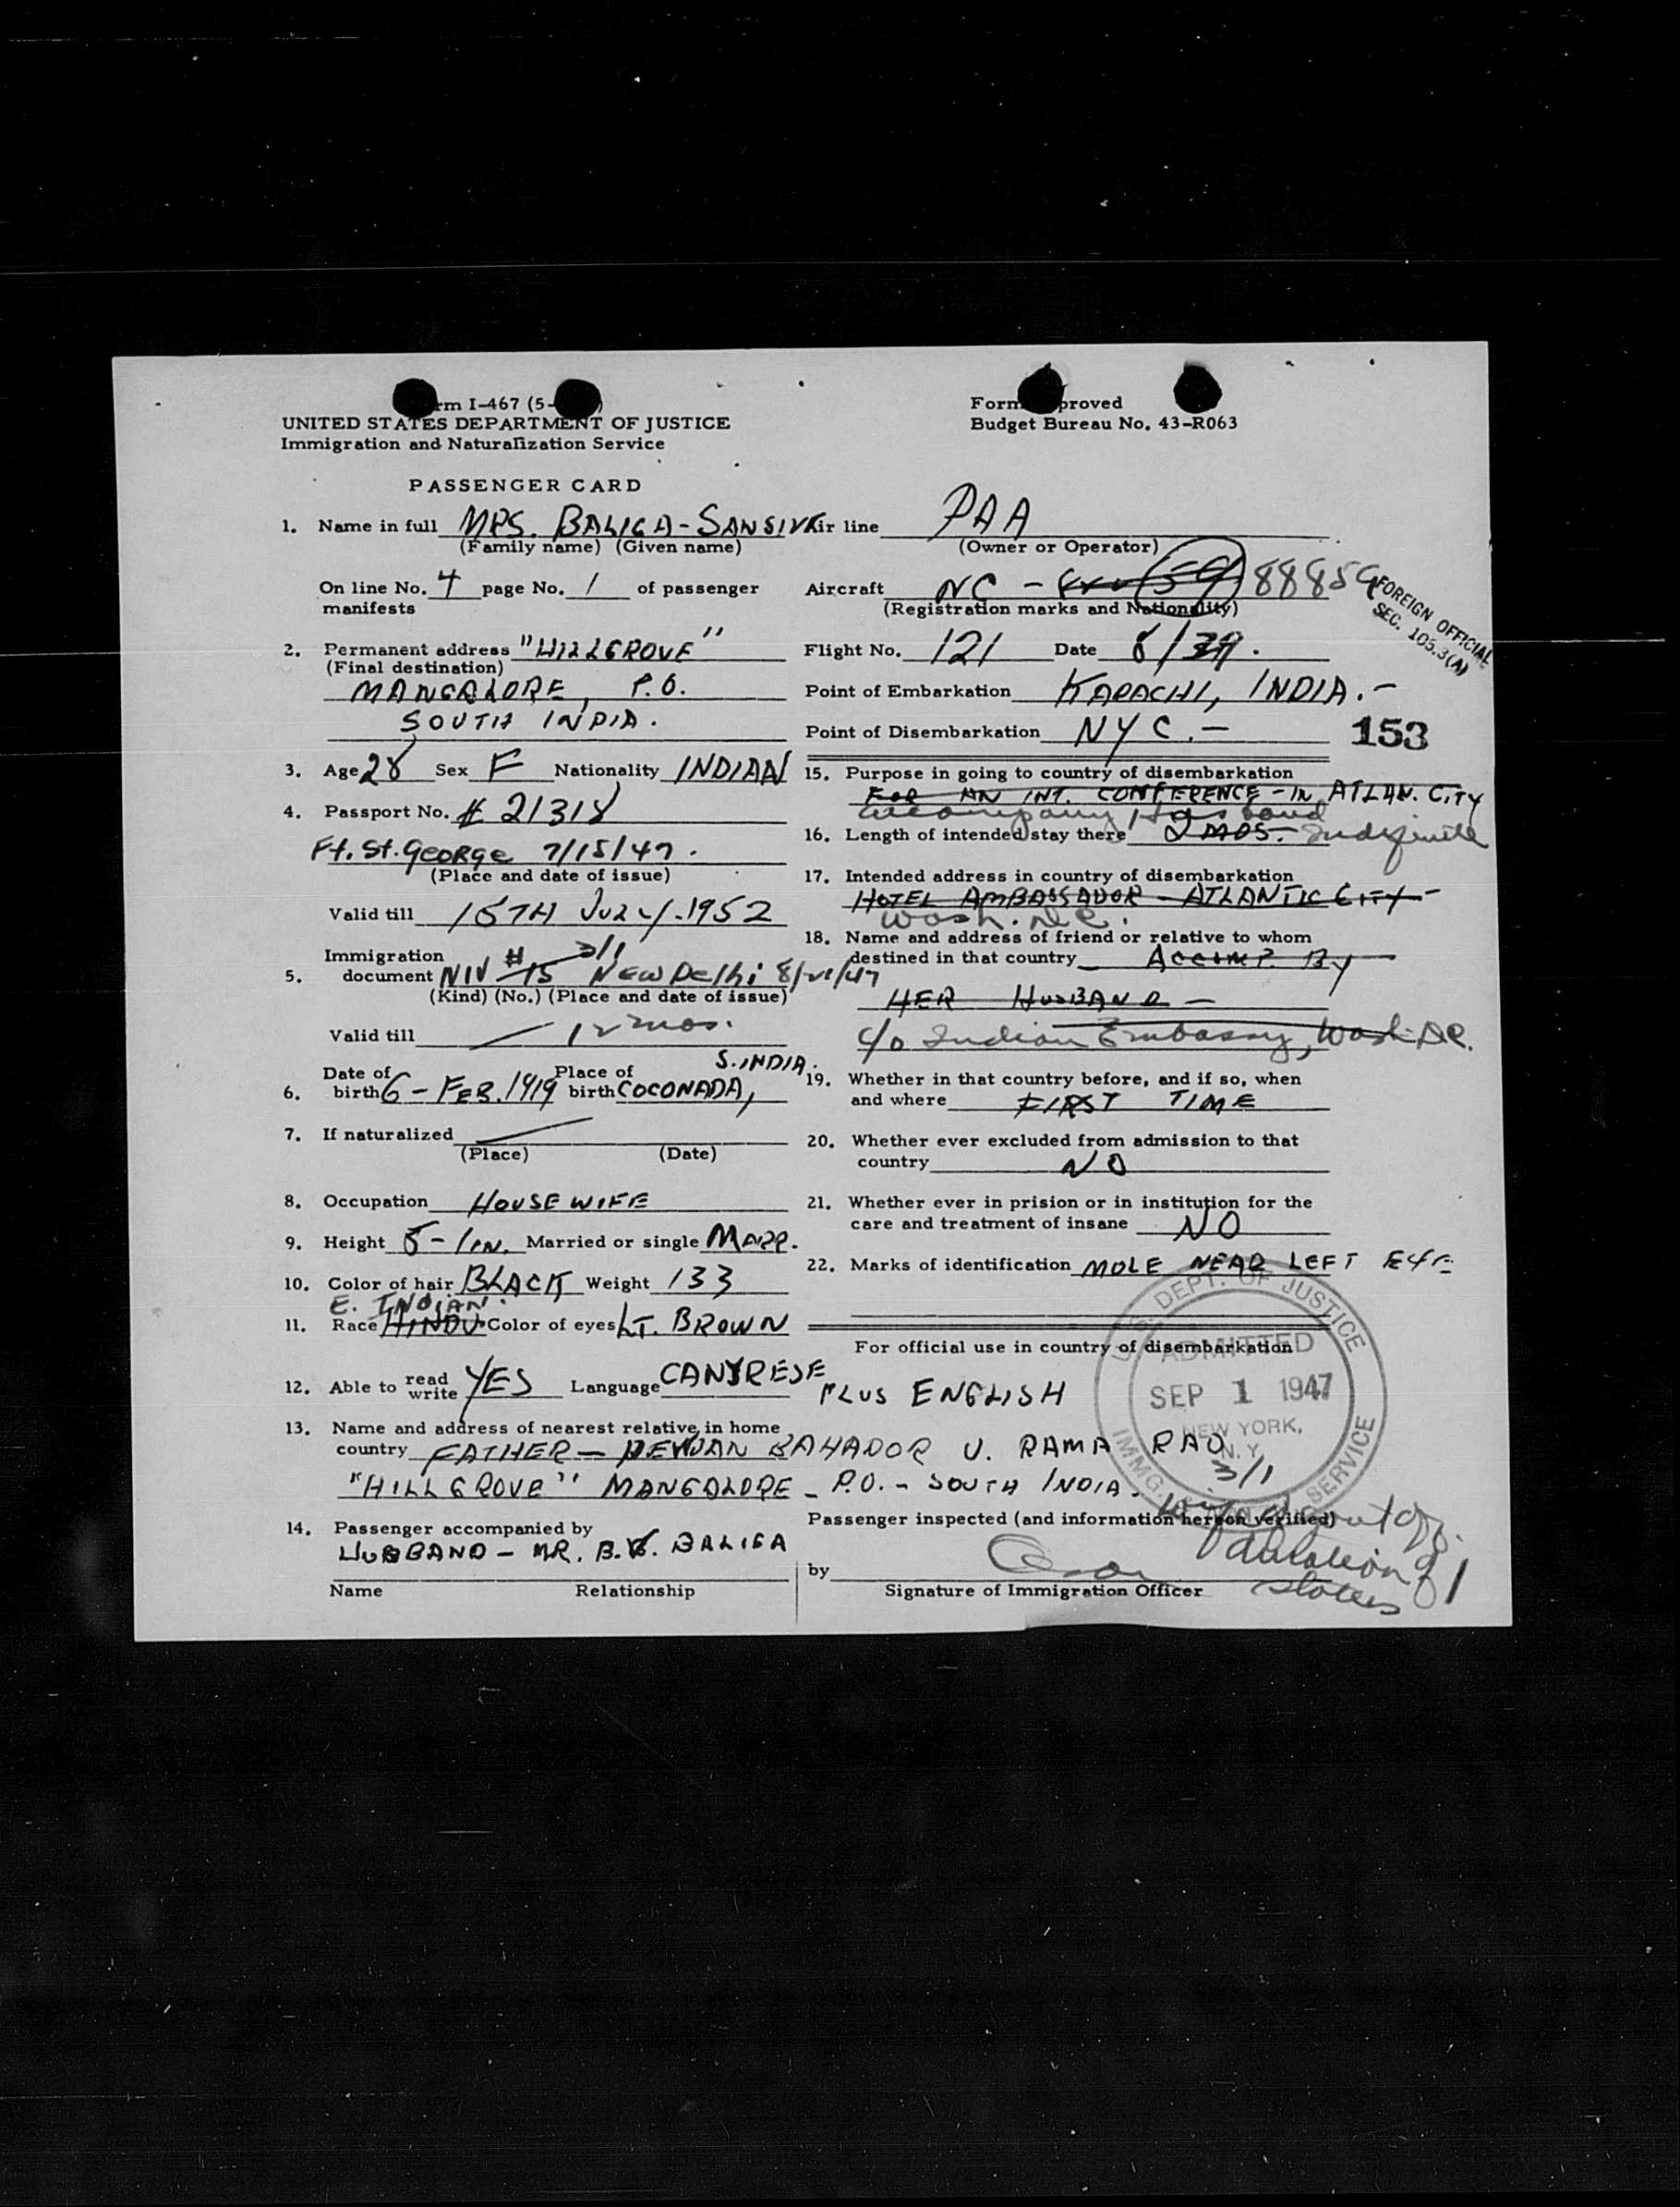 Form I-467 (5-
UNITED STATES DEPARTMENT OF JUSTICE
Immigration and Naturalization Service
Form Approved
Budget Bureau No. 43-R063
PASSENGER CARD
1. Name in full MRS. BALIGA-SANJIVI
(Family name) (Given name)
Air line PAA
(Owner or Operator)
On line No. 4 page No. 1 of passenger
manifests
Aircraft NC - 88859
(Registration marks and Nationality)
FOREIGN OFFICIAL
SEC. 105.3(A)
2. Permanent address "HILLGROVE"
(Final destination)
MANGALORE, P.O.
SOUTH INDIA.
Flight No. 121 Date 8/
Point of Embarkation KARACHI, INDIA.-
Point of Disembarkation NYC.-
153
3. Age 28 Sex F Nationality INDIAN
4. Passport No. # 21318
Ft. St. George 7/15/47.
(Place and date of issue)
Valid till 15TH JULY.1952
Immigration
5. document NIV # 15 3/1 New Delhi 8/21/47
(Kind) (No.) (Place and date of issue)
Valid till — 12 mos.
6. Date of birth 6-FEB.1919 Place of birth COCONADA, S.INDIA.
7. If naturalized —
(Place) (Date)
8. Occupation HOUSEWIFE
9. Height 5-1 IN. Married or single MARR.
10. Color of hair BLACK Weight 133
E. INDIAN.
11. Race HINDU. Color of eyes LT. BROWN
12. Able to read write YES Language CANARESE
PLUS ENGLISH
13. Name and address of nearest relative in home
country FATHER — DEWAN BAHADOR U. RAMA RAO
"HILLGROVE" MANGALORE - P.O. - SOUTH INDIA.
14. Passenger accompanied by
HUSBAND - MR. B.V. BALIGA
Name Relationship
15. Purpose in going to country of disembarkation
FOR AN INT. CONFERENCE - IN ATLAN. CITY
accompany Husband
16. Length of intended stay there 2 MOS. - Indefinite
17. Intended address in country of disembarkation
HOTEL AMBASSADOR - ATLANTIC CITY -
Wash. D.C.
18. Name and address of friend or relative to whom
destined in that country ACCOMP. BY
HER HUSBAND -
c/o Indian Embassy, Wash. D.C.
19. Whether in that country before, and if so, when
and where FIRST TIME
20. Whether ever excluded from admission to that
country NO
21. Whether ever in prision or in institution for the
care and treatment of insane NO
22. Marks of identification MOLE NEAR LEFT EYE
For official use in country of disembarkation
U.S. DEPT. OF JUSTICE
ADMITTED
SEP 1 1947
NEW YORK,
N.Y.
IMMG. SERVICE
3/1
Passenger inspected (and information hereon verified)
by
Signature of Immigration Officer